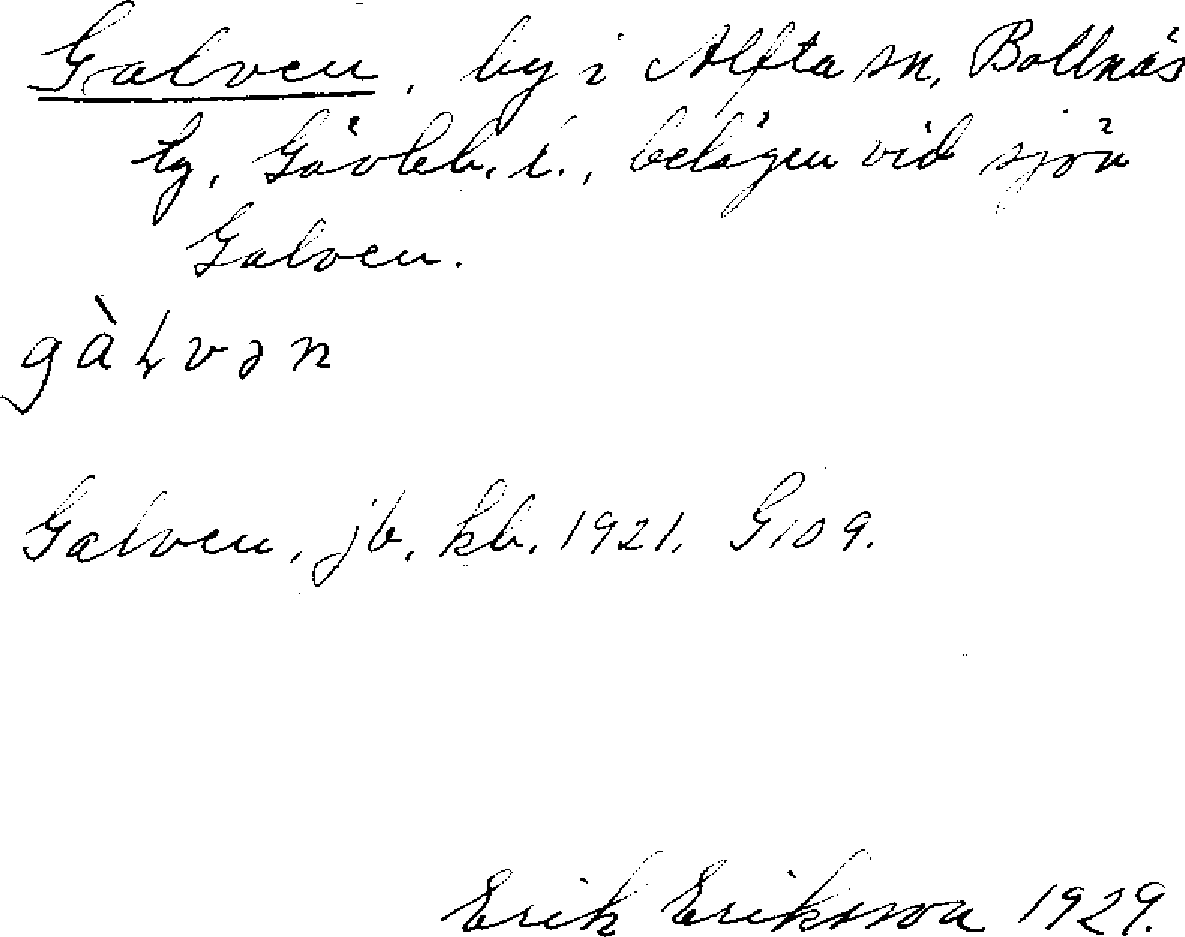 Galven, by i Alfta sn, Bollnäs
tg, Gävleb. l., belägen vid sjön
Galven.
gàɫvən
Galven, jb, kb. 1921. G109.
Erik Eriksson 1929.